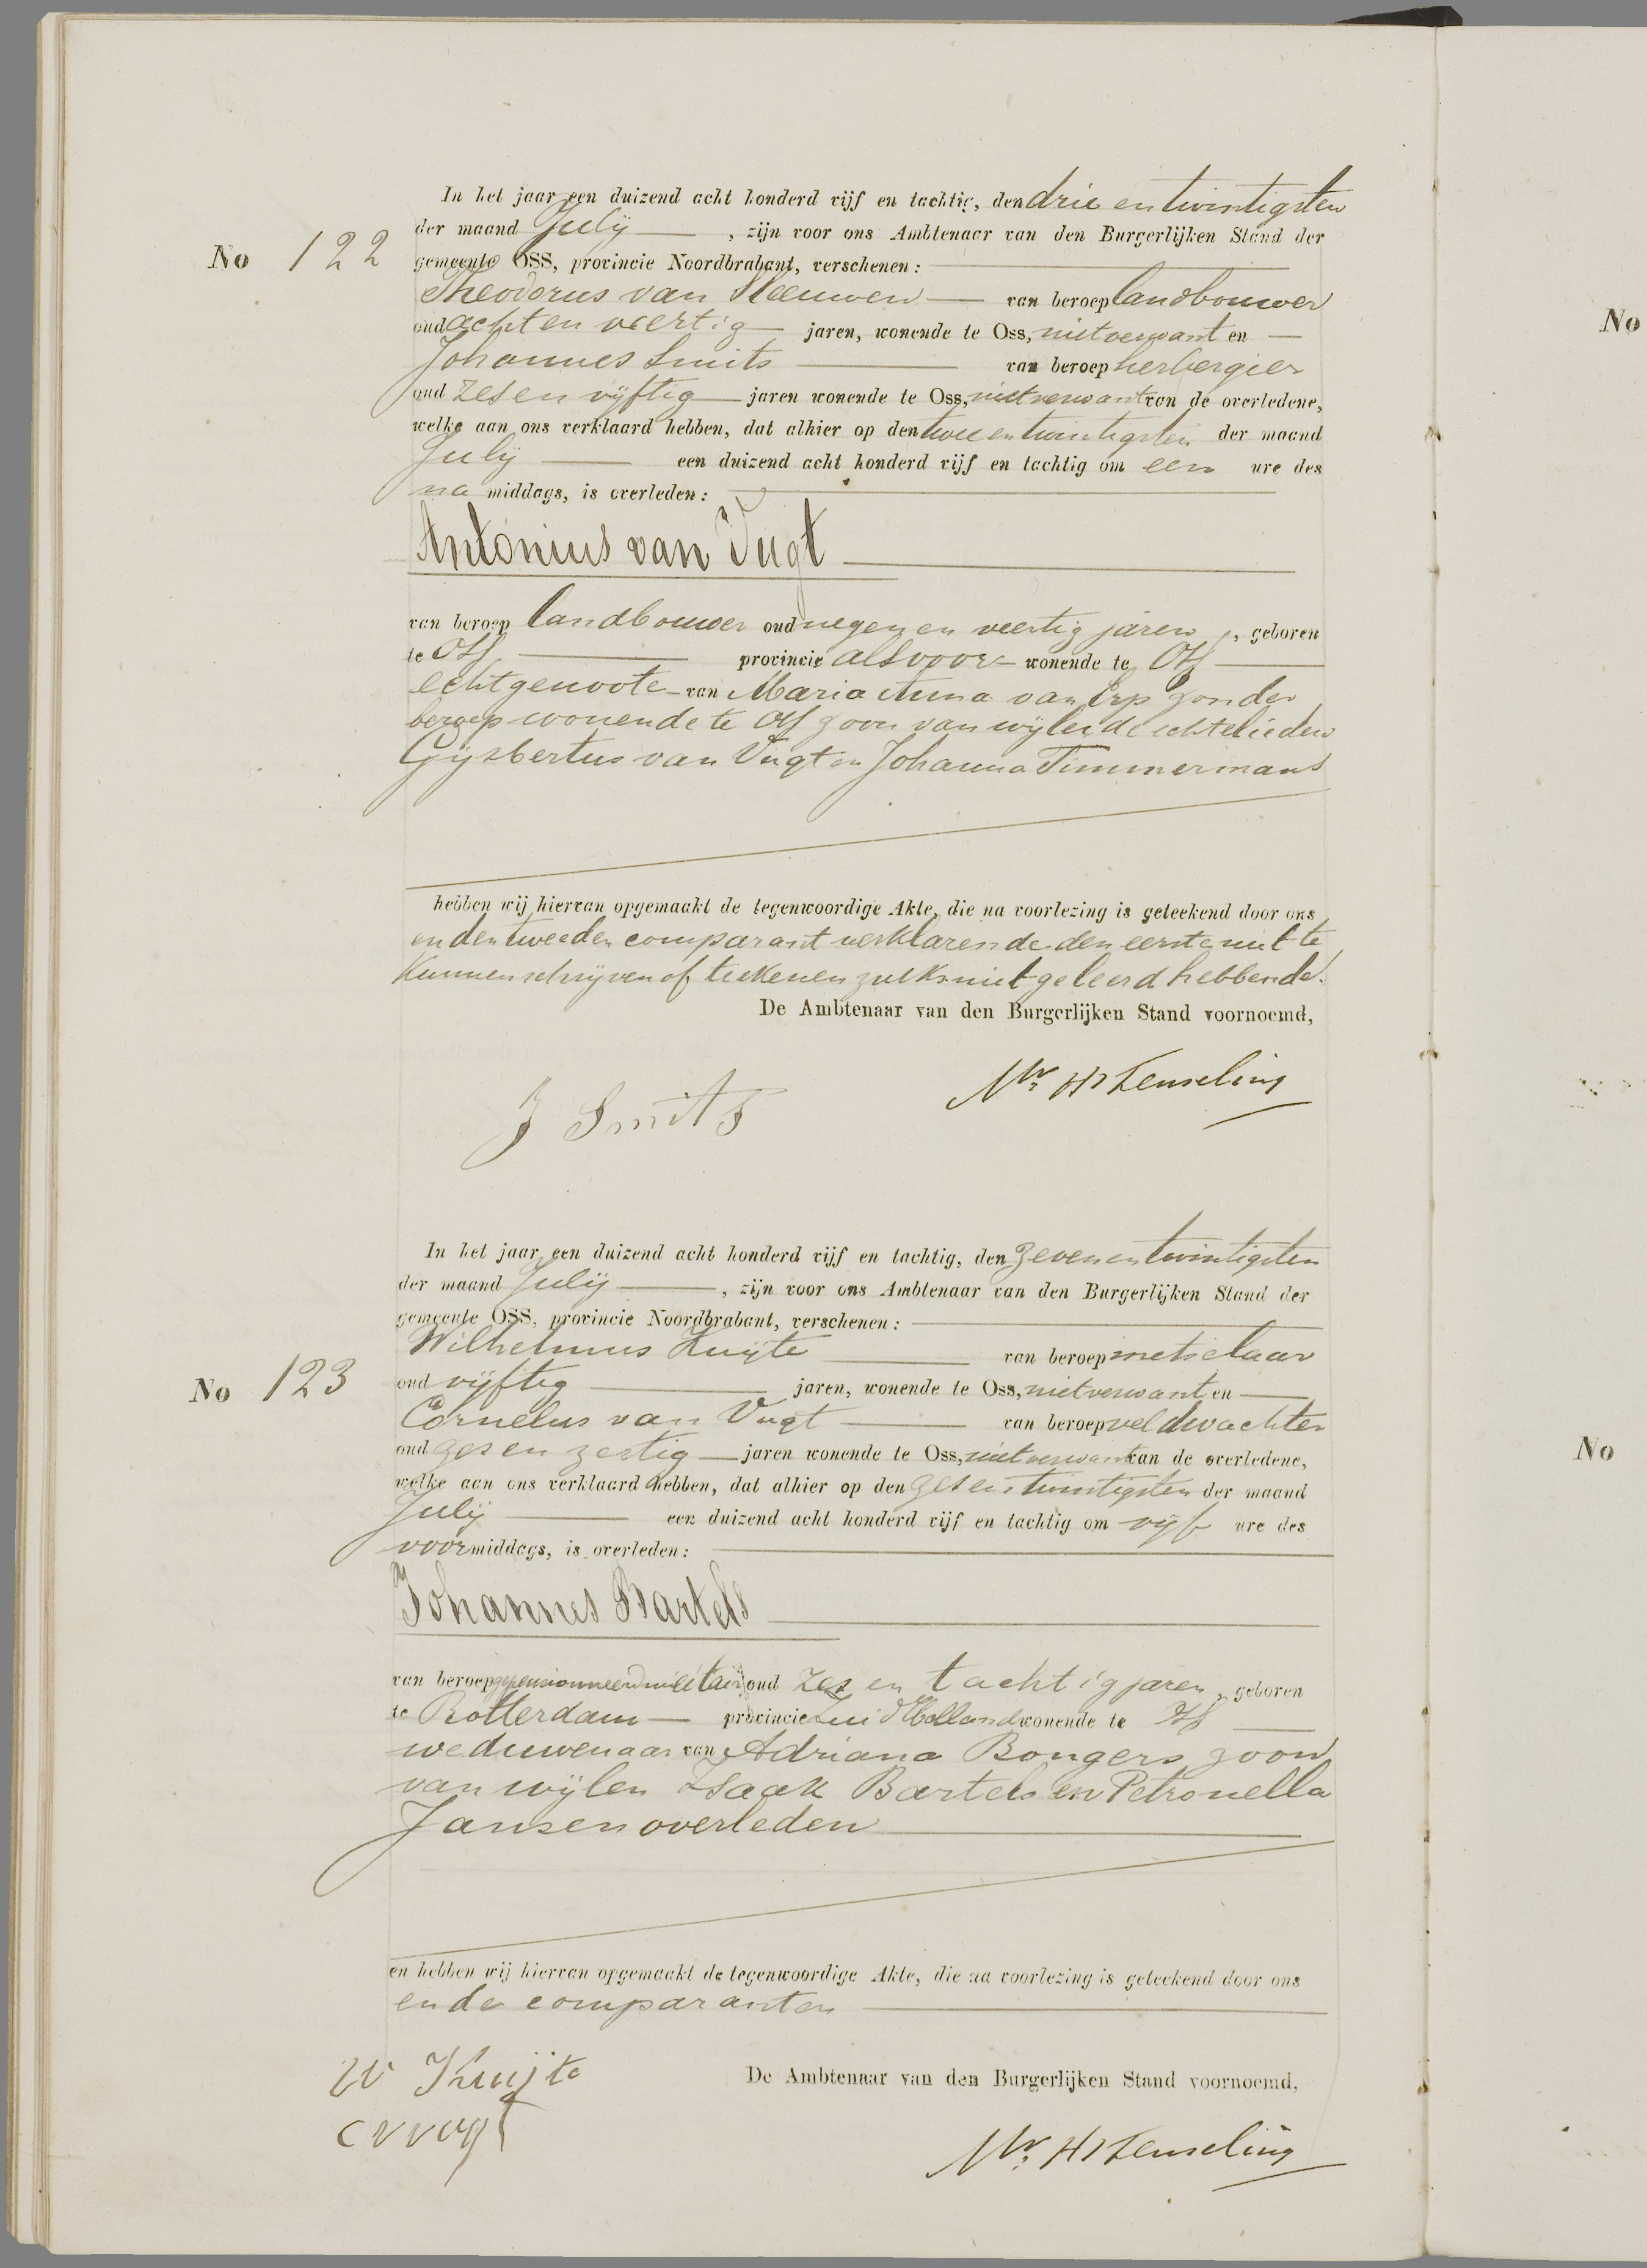 In het jaar een duizend acht honderd vijf en tachtig, den drie en twintigsten
der maand July , zijn voor ons Ambtenaar van den Burgerlijken Stand der
No 122 gemeente OSS, provincie Noordbrabant, verschenen:
Theodorus van van beroep landbouwer
oud acht en veertig jaren, wonende te Oss, niet verwant en
Johannes Smits van beroep herbergier
oud zes en vijftig jaren wonende te Oss, niet verwant van de overledene,
welke aan ons verklaard hebben, dat alhier op den twee en twintigsten der maand
July een duizend acht honderd vijf en tachtig om een ure des
na middags, is overleden:
Antonius van Vugt
van beroep landbouwer oud negen en veertig jaren, geboren
te Oss provincie als voor wonende te Oss
echtgenoote van Maria Anna van Erp zonder
beroep wonende te Oss zoon van wijlen de echtelieden
Gijsbertus van Vugt en Johanna Timmermans
hebben wij hiervan opgemaakt de tegenwoordige Akte, die na voorlezing is geteekend door ons
en den tweeden comparant verklarende den eerste niet te
kunnen schrijven of teekenen zulks niet geleerd hebbende.
De Ambtenaar van den Burgerlijken Stand voornoemd,
J Smits
In het jaar een duizend acht honderd vijf en tachtig, den zeven en twintigsten
der maand July , zijn voor ons Ambtenaar van den Burgerlijken Stand der
gemeente OSS, provincie Noordbrabant, verschenen:
Wilhelmus Kuijte van beroep metselaar
No 123 oud vijftig jaren, wonende te Oss, niet verwant en
Cornelus van Vugt van beroep veldwachter
oud zes en zestig jaren wonende te Oss, niet verwant van de overledene,
welke aan ons verklaard hebben, dat alhier op den zes en twintigsten der maand
July een duizend acht honderd vijf en tachtig om vijf ure des
voor middags, is overleden:
Johannes Bartels
van beroep gepensionneerd militair oud zes en tachtig jaren, geboren
te Rotterdam provincie Zuid Holland wonende te Oss
weduwenaar van Adriana Bongers zoon
van wijlen Isaak Bartels en Petronella
Jansen overleden
en hebben wij hiervan opgemaakt de tegenwoordige Akte, die na voorlezing is geteekend door ons
en de comparanten
W Kuijte De Ambtenaar van den Burgerlijken Stand voornoemd,
No
No